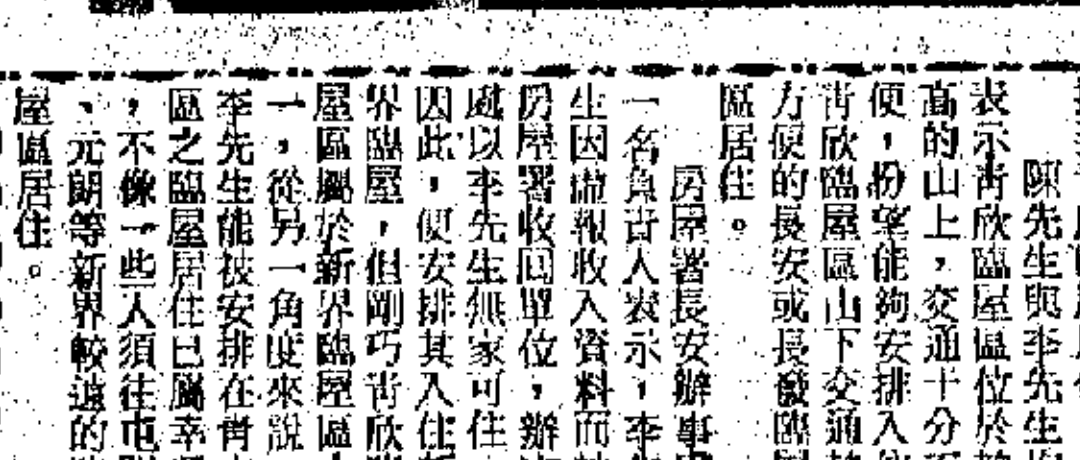 陳先生與李先生
表示青欣臨屋區位於
高的山上，交通十分
便，盼望能夠安排入
青欣臨屋區山下交通
方便的長安或長發臨
區居住。
房屋署長安辦事
一名負責人表示，李
生因虛報收入資料而
房屋署收回單位，辦
處以李先生無家可住
因此，便安排其入住
界臨屋，但剛巧青欣
屋區屬於新界臨屋區
一，從另一角度來說
李先生能被安排在青
區之臨屋居住已屬幸
，不像一些人須往屯
、元朗等新界較遠的
屋區居住。